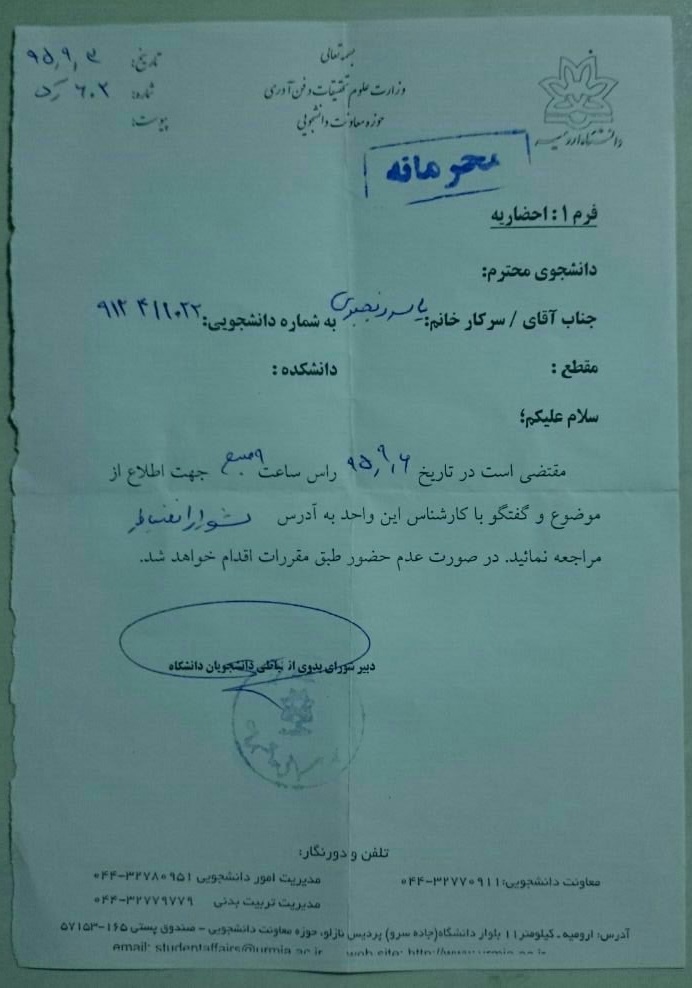 بسمه تعالی
وزارت علوم تحقیقات و فن آوری
حوزه معاونت دانشجویی
تاریخ: ۹۵٫۹٫۳
شماره: ۶۰۲
پیوست:
دانشگاه ارومیه
محرمانه
فرم ۱: احضاریه
دانشجوی محترم:
جناب آقای / سرکار خانم: یاسر به شماره دانشجویی: ۹۱۲۴۱۱۰۲۲
مقطع : دانشکده :
سلام علیکم؛
مقتضی است در تاریخ ۹۵٫۹٫۶ راس ساعت ۹ صبح جهت اطلاع از
موضوع و گفتگو با کارشناس این واحد به آدرس شورای انضباطی
مراجعه نمائید. در صورت عدم حضور طبق مقررات اقدام خواهد شد.
دبیر شورای بدوی انضباطی دانشجویان دانشگاه
تلفن و دورنگار:
معاونت دانشجویی: ۰۴۴-۳۲۷۷۰۹۱۱ مدیریت امور دانشجویی ۰۴۴-۳۲۷۸۰۹۵۱
مدیریت تربیت بدنی ۰۴۴-۳۲۷۷۹۷۷۹
آدرس: ارومیه - کیلومتر ۱۱ بلوار دانشگاه(جاده سرو) پردیس نازلو، حوزه معاونت دانشجویی - صندوق پستی ۱۶۵-۵۷۱۵۳
email: studentaffairs@urmia.ac.ir web site: http://www.urmia.ac.ir